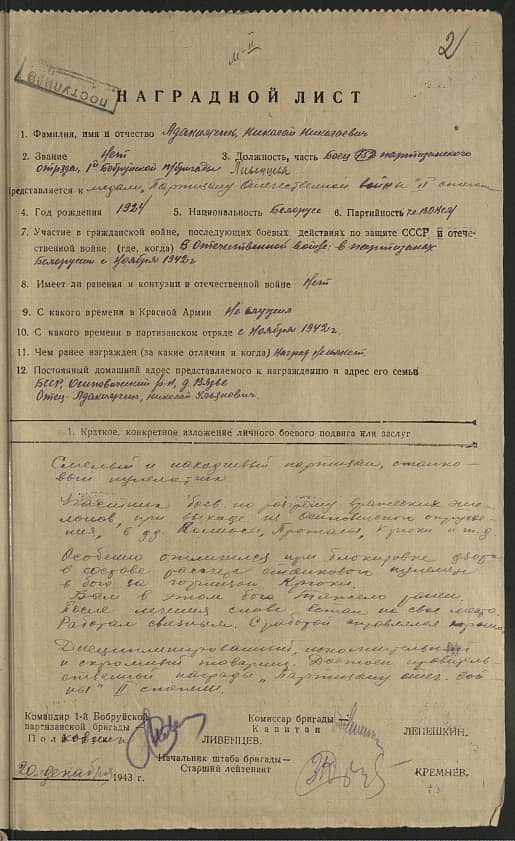 м-II
2
ПОСТУПИЛО
НАГРАДНОЙ ЛИСТ
1. Фамилия, имя и отчество Адамович, Николай Николаевич
2. Звание Нет 3. Должность, часть Боец 152 партизанского
отряда, 1й Бобруйской п/бригады Ливенцева
Представляется к медали „Партизану Отечественной войны" II степени
4. Год рождения 1924 5. Национальность Белорус 6. Партийность чл. ВЛКСМ
7. Участие в гражданской войне, последующих боевых действиях по защите СССР и отече-
ственной войне (где, когда) В Отечественной войне: в партизанах
Белоруссии с Ноября 1942 г.
8. Имеет ли ранения и контузии в отечественной войне Нет
9. С какого времени в Красной Армии Не служил
10. С какого времени в партизанском отряде с Ноября 1942 г.
11. Чем ранее награжден (за какие отличия и когда) Наград не имеет.
12. Постоянный домашний адрес представляемого к награждению и адрес его семьи
БССР, Осиповичский р-н, д. Вязье
Отец - Николай Ульянович.
1. Краткое, конкретное изложение личного боевого подвига или заслуг
Смелый и находчивый партизан, станко-
вый пулеметчик
Участник боев по разгрому вражеских эше-
лонов, при выходе из Осиповичского окруже-
ния, в дд. Крюки и т.д.
Особенно отличился при блокировке
в составе расчета станкового пулемета
в бою за Крюки.
Был в этом бою тяжело ранен.
После лечения снова встал на свое место.
Работал связным. С работой справлялся хорошо.
Дисциплинированный, исполнительный
и скромный товарищ. Достоин правитель-
ственной награды „Партизану отеч. вой-
ны" II степени.
Командир 1-й Бобруйской Комиссар бригады—
партизанской бригады— Капитан ЛЕПЕШКИН.
Полковник ЛИВЕНЦЕВ.
Начальник штаба бригады—
Старший лейтенант КРЕМНЕВ.
20 декабря 1943 г.